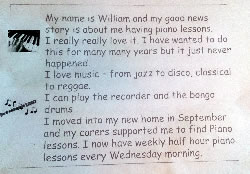 My name is William and my good news
story is about me having piano lessons.
I really really love it. I have wanted to do
this for many many years but it just never
happened.
I love music - from jazz to disco, classical
to reggae.
I can play the recorder and the bongo
drums
I moved into my new home in September
and my carers supported me to find Piano
lessons. I now have weekly half hour piano
lessons every Wednesday morning.